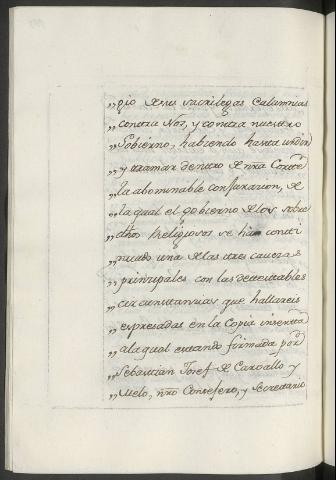 „pio de sus sacrilegas Calumnias
„contra Nos, y contra nuestro
„Gobierno, habiendo hasta urdir
„y tramar dentro de nrã Corte
„la abominable conjuracion, de
„la qual el gobierno de los sobre
„dhos Religiosos se ha consti
„tuido una de las tres cavezas
„principales con las detestables
„circunstancias que hallareis
„expresadas en la Copia inserta
„a la qual estando firmada por
„Sebastian Josef de Carvallo y
„Melo, nrõ Consejero, y Secretario